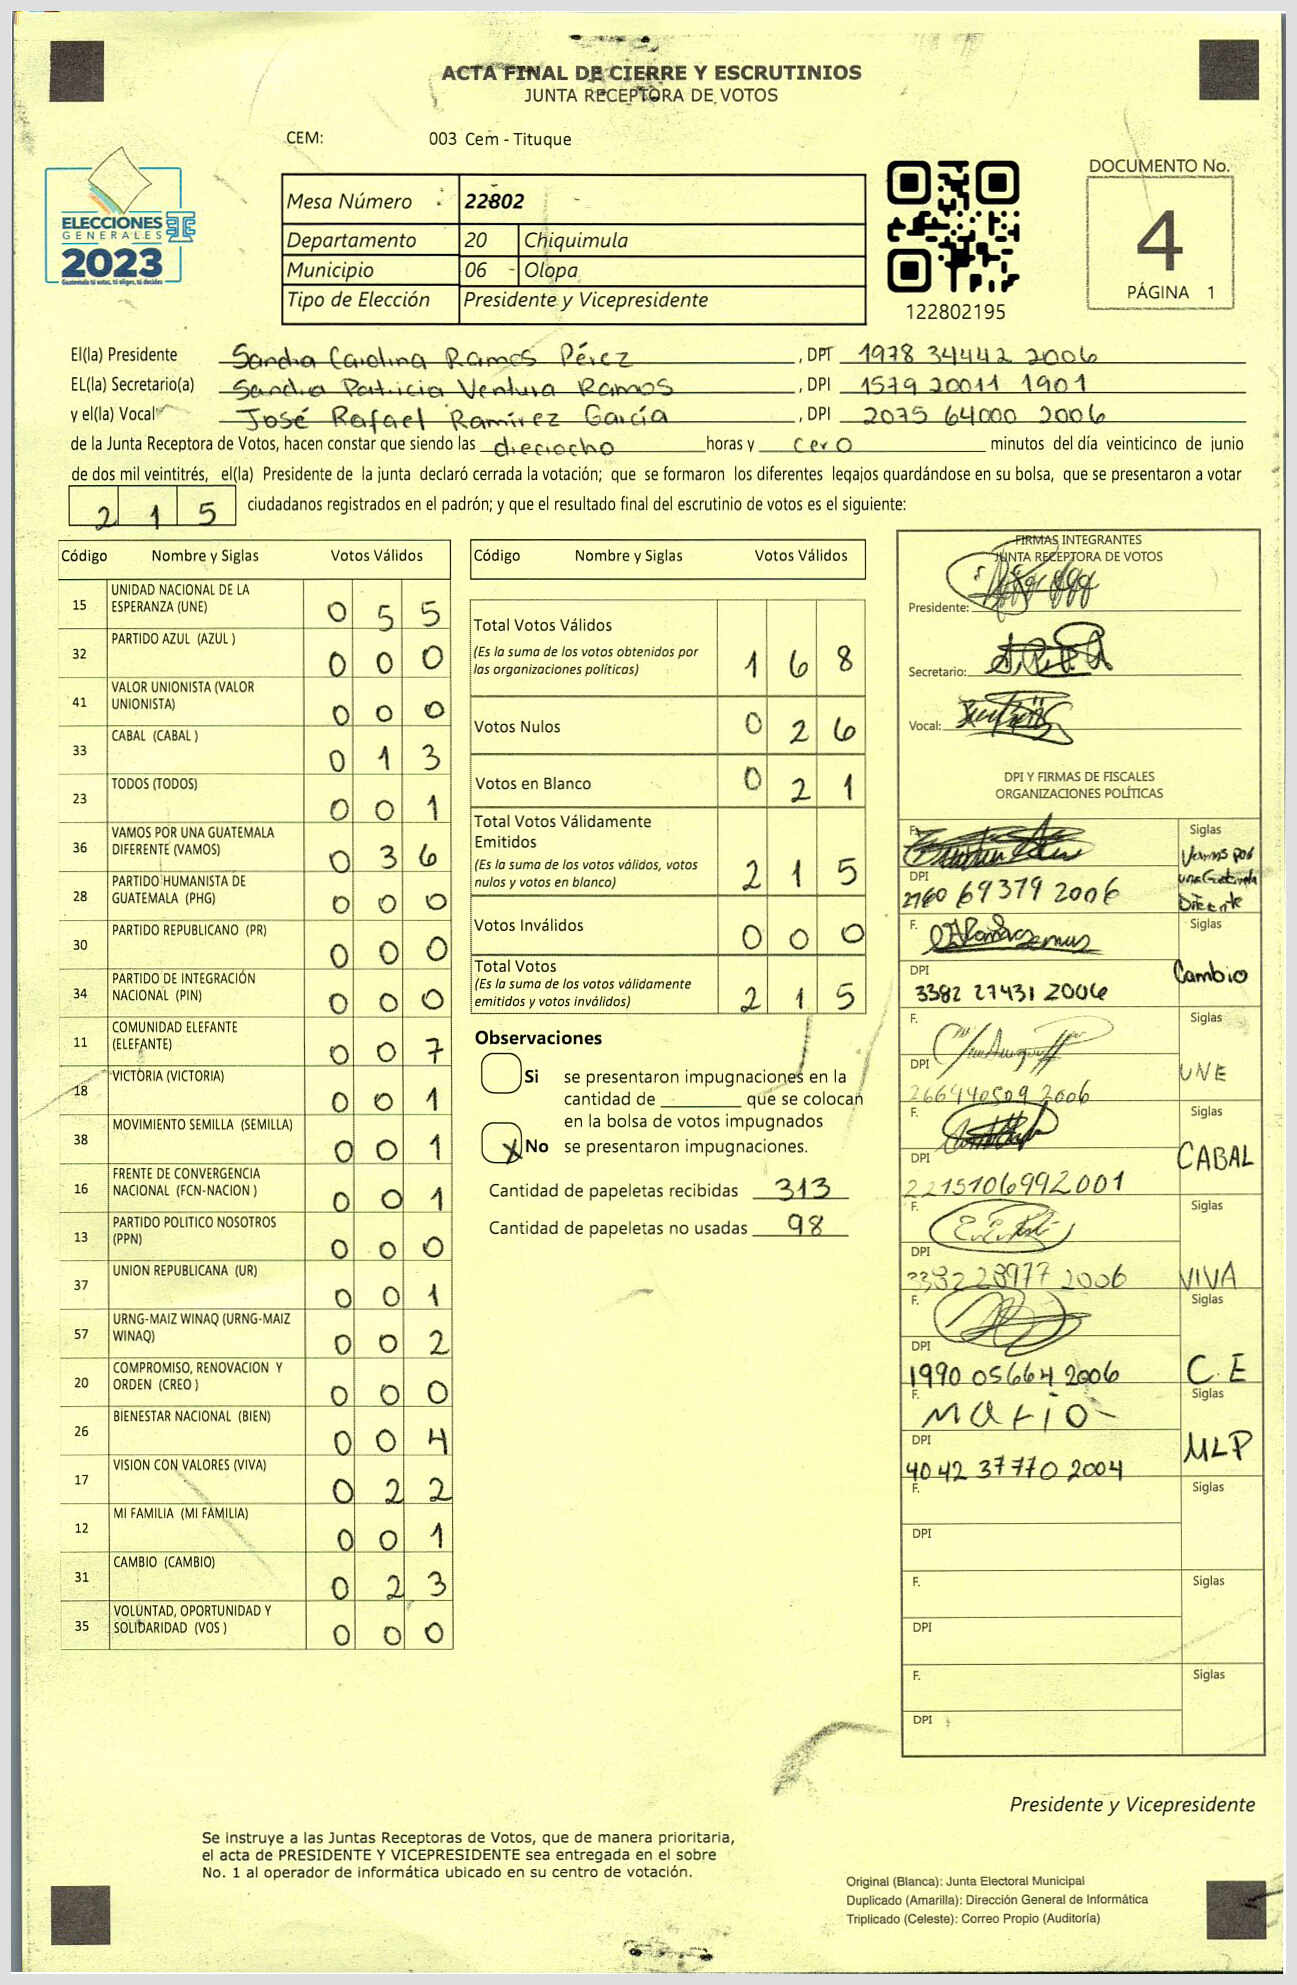 ACTA FINAL DE CIERRE Y ESCRUTINIOS
JUNTA RECEPTORA DE VOTOS
CEM: 003 Cem - Tituque
ELECCIONES
GENERALES
2023
Guatemala tú votas, tú eliges, tú decides
Mesa Número 22802
Departamento 20 Chiquimula
Municipio 06 Olopa
Tipo de Elección Presidente y Vicepresidente
122802195
DOCUMENTO No.
4
PÁGINA 1
El(la) Presidente Sandra Carolina Ramos Pérez, DPI 1978 34442 2006
EL(la) Secretario(a) Sandra Patricia Ventura Ramos, DPI 1579 20011 1901
y el(la) Vocal José Rafael Ramírez García, DPI 2075 64000 2006
de la Junta Receptora de Votos, hacen constar que siendo las dieciocho horas y cero minutos del día veinticinco de junio
de dos mil veintitrés, el(la) Presidente de la junta declaró cerrada la votación; que se formaron los diferentes legajos guardándose en su bolsa, que se presentaron a votar
215 ciudadanos registrados en el padrón; y que el resultado final del escrutinio de votos es el siguiente:
Código Nombre y Siglas Votos Válidos
15 UNIDAD NACIONAL DE LA ESPERANZA (UNE) 0 5 5
32 PARTIDO AZUL (AZUL ) 0 0 0
41 VALOR UNIONISTA (VALOR UNIONISTA) 0 0 0
33 CABAL (CABAL ) 0 1 3
23 TODOS (TODOS) 0 0 1
36 VAMOS POR UNA GUATEMALA DIFERENTE (VAMOS) 0 3 6
28 PARTIDO HUMANISTA DE GUATEMALA (PHG) 0 0 0
30 PARTIDO REPUBLICANO (PR) 0 0 0
34 PARTIDO DE INTEGRACIÓN NACIONAL (PIN) 0 0 0
11 COMUNIDAD ELEFANTE (ELEFANTE) 0 0 7
18 VICTORIA (VICTORIA) 0 0 1
38 MOVIMIENTO SEMILLA (SEMILLA) 0 0 1
16 FRENTE DE CONVERGENCIA NACIONAL (FCN-NACION ) 0 0 1
13 PARTIDO POLITICO NOSOTROS (PPN) 0 0 0
37 UNION REPUBLICANA (UR) 0 0 1
57 URNG-MAIZ WINAQ (URNG-MAIZ WINAQ) 0 0 2
20 COMPROMISO, RENOVACION Y ORDEN (CREO ) 0 0 0
26 BIENESTAR NACIONAL (BIEN) 0 0 4
17 VISION CON VALORES (VIVA) 0 2 2
12 MI FAMILIA (MI FAMILIA) 0 0 1
31 CAMBIO (CAMBIO) 0 2 3
35 VOLUNTAD, OPORTUNIDAD Y SOLIDARIDAD (VOS ) 0 0 0
Código Nombre y Siglas Votos Válidos
Total Votos Válidos 1 6 8
(Es la suma de los votos obtenidos por
las organizaciones políticas)
Votos Nulos 0 2 6
Votos en Blanco 0 2 1
Total Votos Válidamente
Emitidos 2 1 5
(Es la suma de los votos válidos, votos
nulos y votos en blanco)
Votos Inválidos 0 0 0
Total Votos 2 1 5
(Es la suma de los votos válidamente
emitidos y votos inválidos)
Observaciones
Si se presentaron impugnaciones en la
cantidad de ________ que se colocan
en la bolsa de votos impugnados
X No se presentaron impugnaciones.
Cantidad de papeletas recibidas 313
Cantidad de papeletas no usadas 98
FIRMAS INTEGRANTES
JUNTA RECEPTORA DE VOTOS
Presidente:
Secretario:
Vocal:
DPI Y FIRMAS DE FISCALES
ORGANIZACIONES POLÍTICAS
F. Siglas Vamos por una Guatemala Diferente
DPI 2760 69379 2006
F. Siglas Cambio
DPI 3382 27431 2006
F. Siglas UNE
DPI 266440509 2006
F. Siglas CABAL
DPI 2215106992001
F. Siglas VIVA
DPI 3382 28977 2006
F. Siglas C.E
DPI 1990 05664 2006
F. Mario Siglas MLP
DPI 4042 37770 2004
F. Siglas
DPI
F. Siglas
DPI
F. Siglas
DPI
Presidente y Vicepresidente
Se instruye a las Juntas Receptoras de Votos, que de manera prioritaria,
el acta de PRESIDENTE Y VICEPRESIDENTE sea entregada en el sobre
No. 1 al operador de informática ubicado en su centro de votación.
Original (Blanca): Junta Electoral Municipal
Duplicado (Amarilla): Dirección General de Informática
Triplicado (Celeste): Correo Propio (Auditoría)